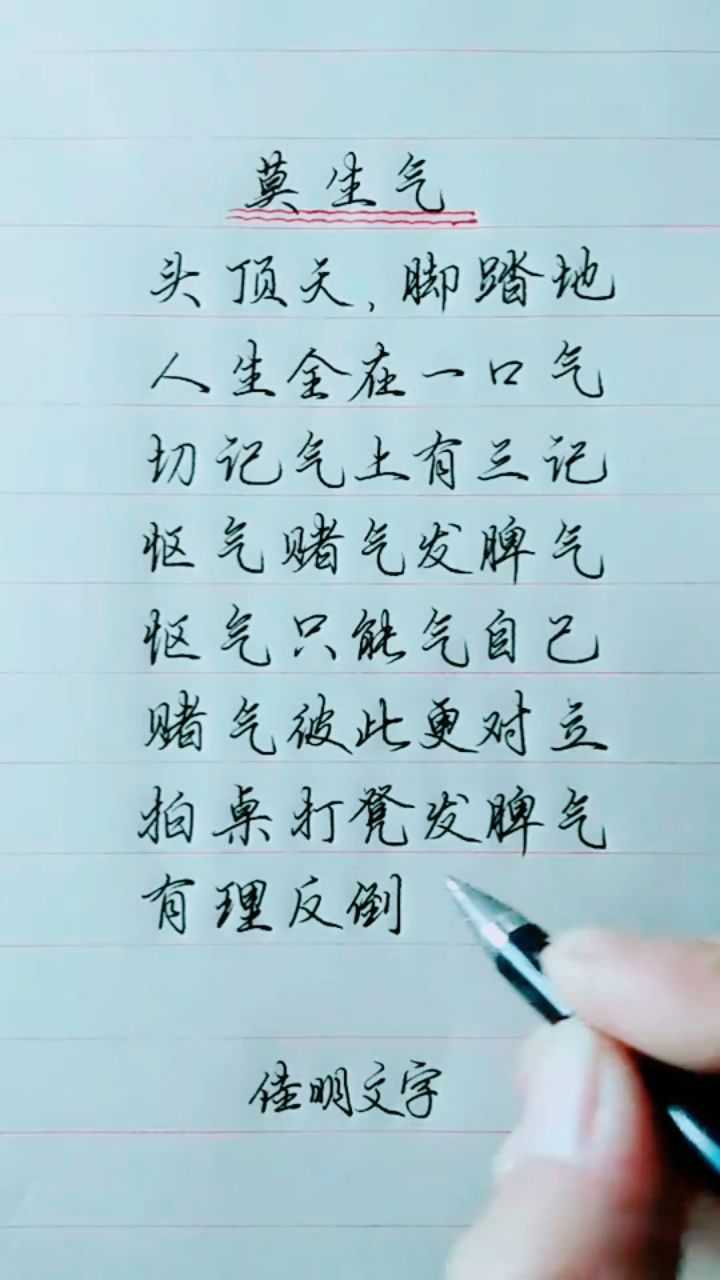 莫生气
头顶天,脚踏地
人生全在一口气
切记气上有三记
怄气赌气发脾气
怄气只能气自己
赌气彼此更对立
拍桌打凳发脾气
有理反倒
佳明文字